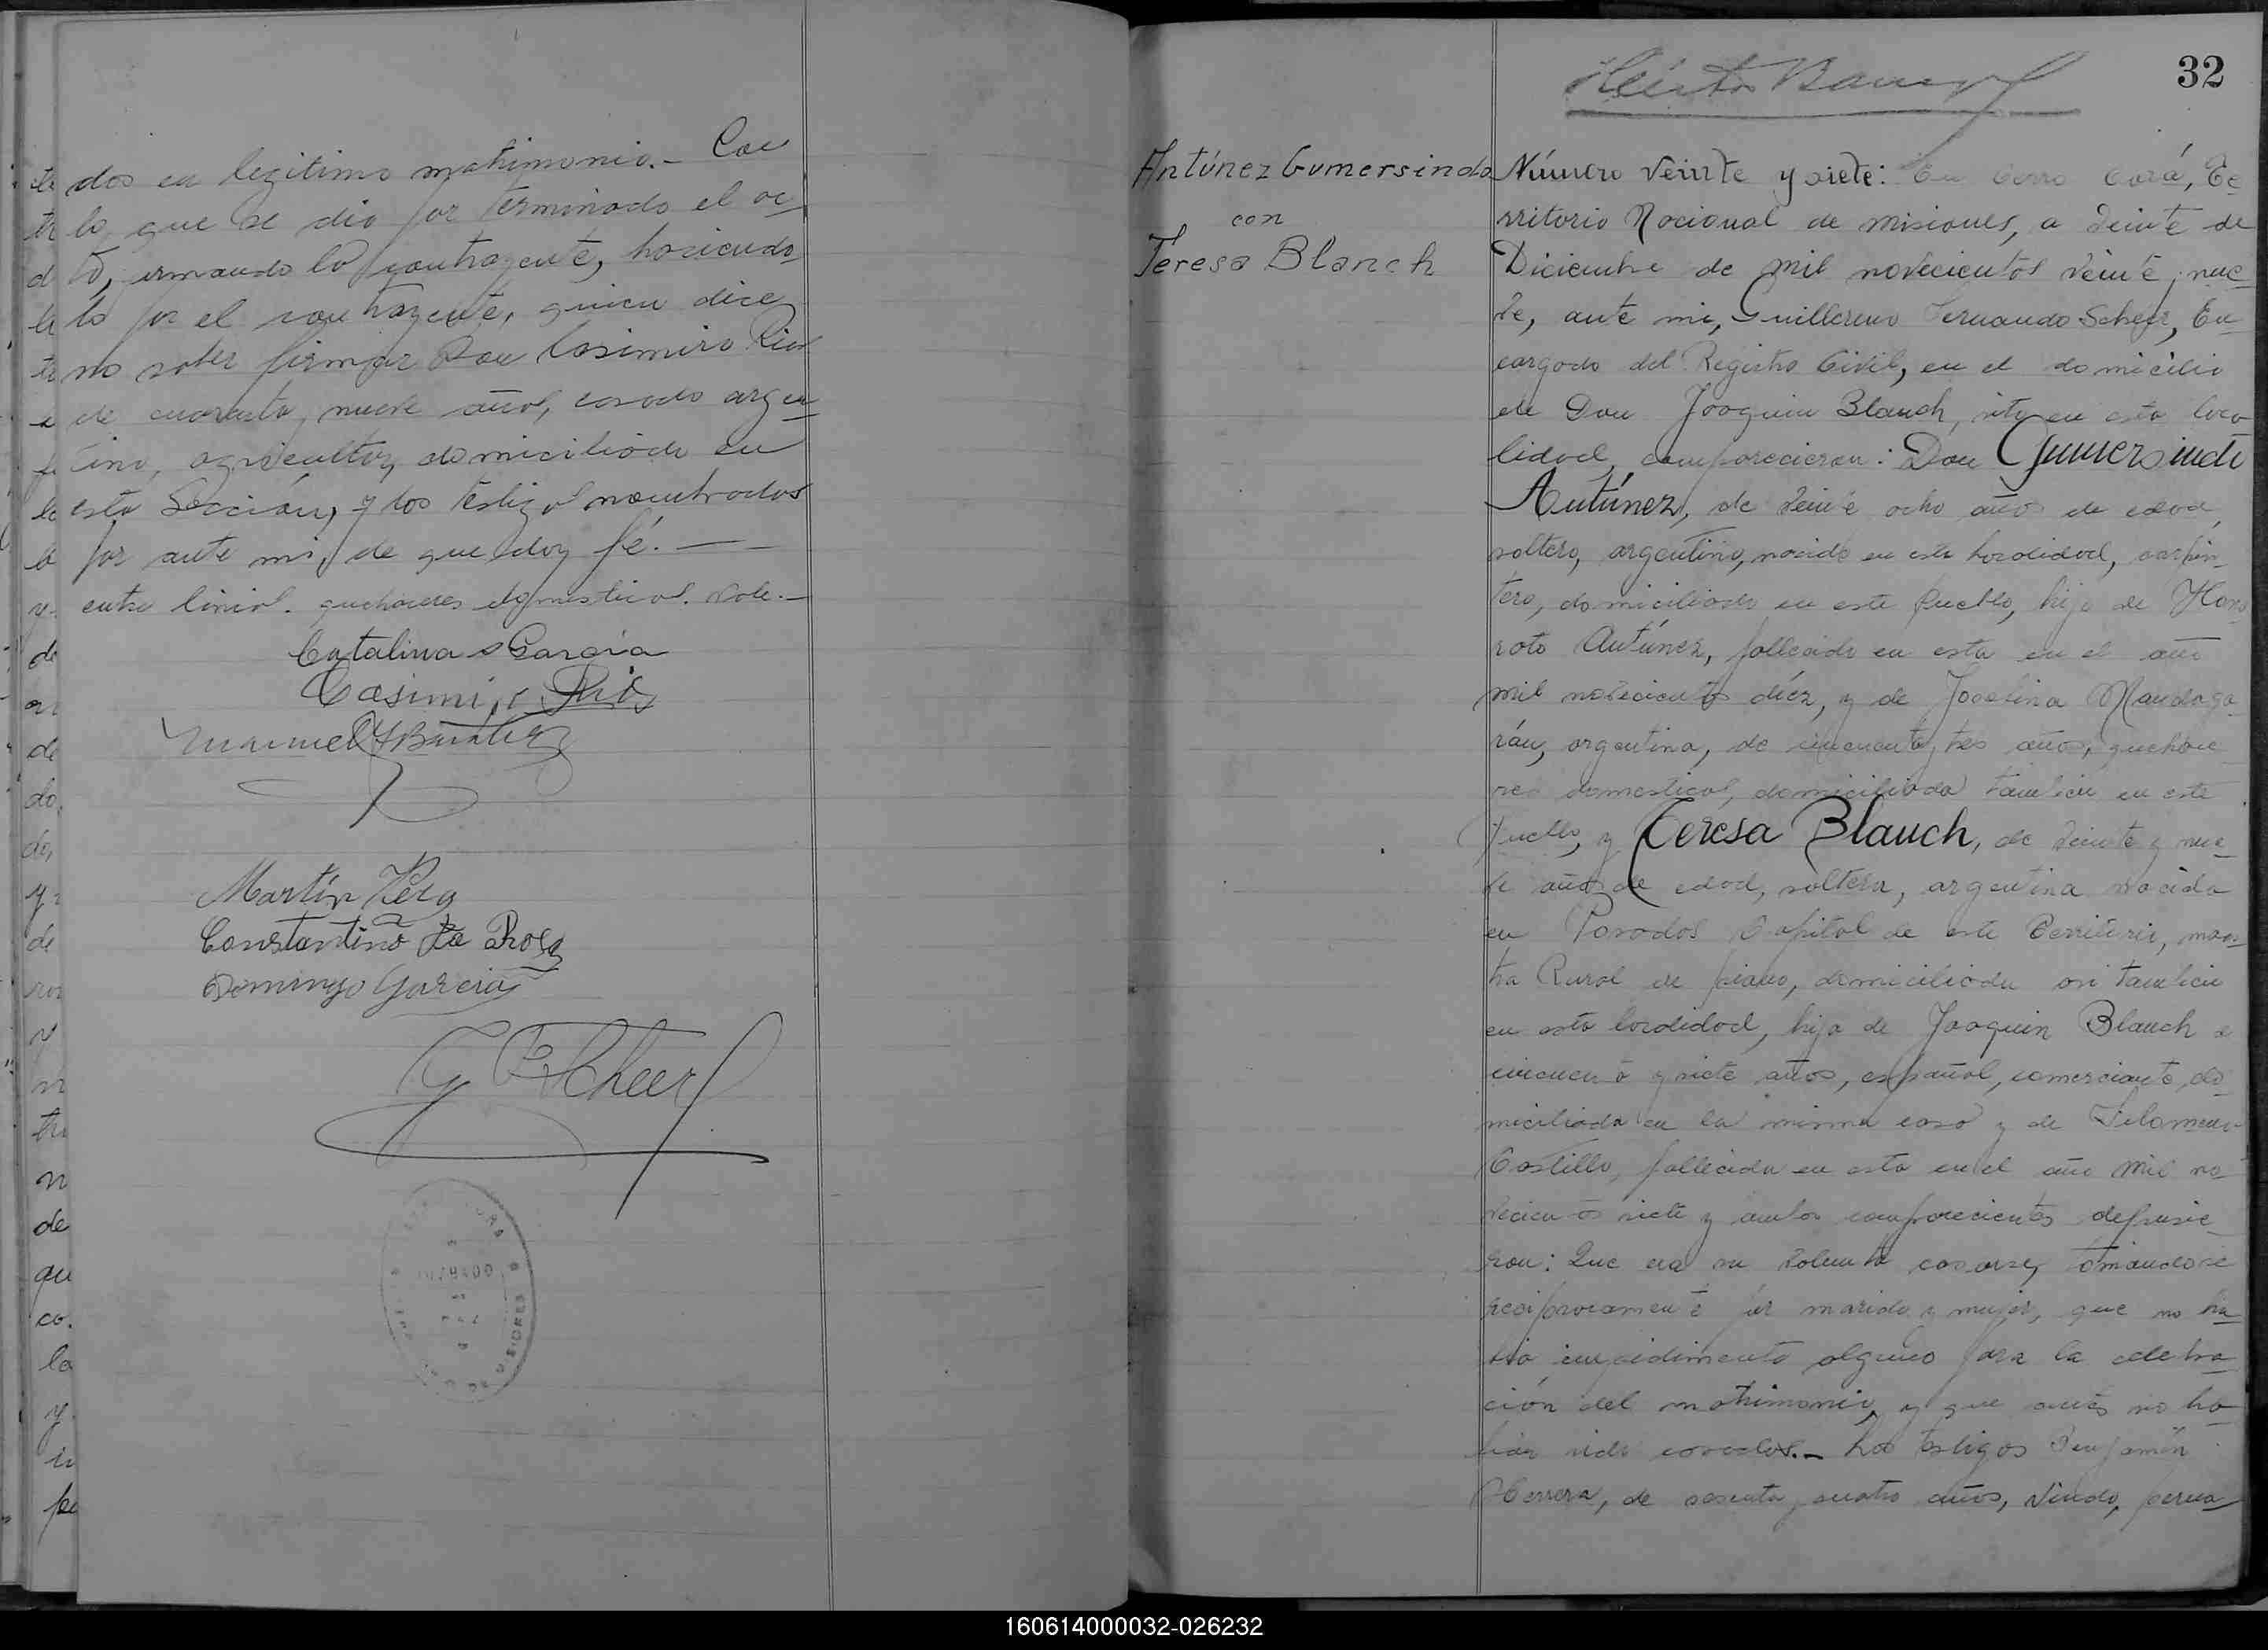 dos en legitimo matrimonio.- Con
lo que se dio por terminado el ac-
to, firmando la contrayente, haciendo-
lo por el contrayente, quien dice
no saber firmar Don Casimiro Rios
de cuarenta y nueve años, casado argen-
tino, agricultor, domiciliado en
esta Sección, y los testigos nombrados
por ante mi, de que doy fé. —
entre linias. quehaceres domesticos. Vale.-
Catalina Garcia
Casimiro Rios
Manuel
Martín
Constantino Da Rosa
Domingo Garcia
G F Scheer
32
Antúnez Gumersindo
con
Teresa Blanch
Número veinte y siete: En Cerro Corá, Te-
rritorio Nacional de Misiones, a veinte de
Diciembre de mil novecientos veinte y nue-
ve, ante mi, Guillermo Fernando Scheer, En-
cargado del Registro Civil, en el domicilio
de Don Joaquin Blanch, sito en esta loca-
lidad, comparecieron: Don Gumersindo
Antúnez, de veinte ocho años de edad,
soltero, argentino, nacido en esta localidad, carpin-
tero, domiciliado en este Pueblo, hijo de Hono-
rato Antúnez, fallecido en esta en el año
mil novecientos diéz, y de Jovelina Mandaga-
rán, argentina, de cincuenta y tres años, quehace-
res domesticos, domiciliada tambien en este
Pueblo, y Teresa Blanch, de veinte y nue-
ve años de edad, soltera, argentina nacida
en Posadas Capital de este Territorio, maes-
tra Rural de piano, domiciliada asi tambien
en esta localidad, hija de Joaquin Blanch de
cincuenta y siete años, español, comerciante, do-
miciliado en la misma casa y de Filomena
Castillo, fallecida en esta en el año mil no-
vecientos siete y ambos comparecientes depusie-
ron: Que era su voluntad casarse, tomandose
reciprocamente por marido y mujer, que no ha-
bia impedimento alguno para la celebra-
ción del matrimonio, y que antes no ha-
bian sido casados.- Los testigos Benjamín
Herrera, de sesenta y cuatro años, viudo, perua-
160614000032-026232